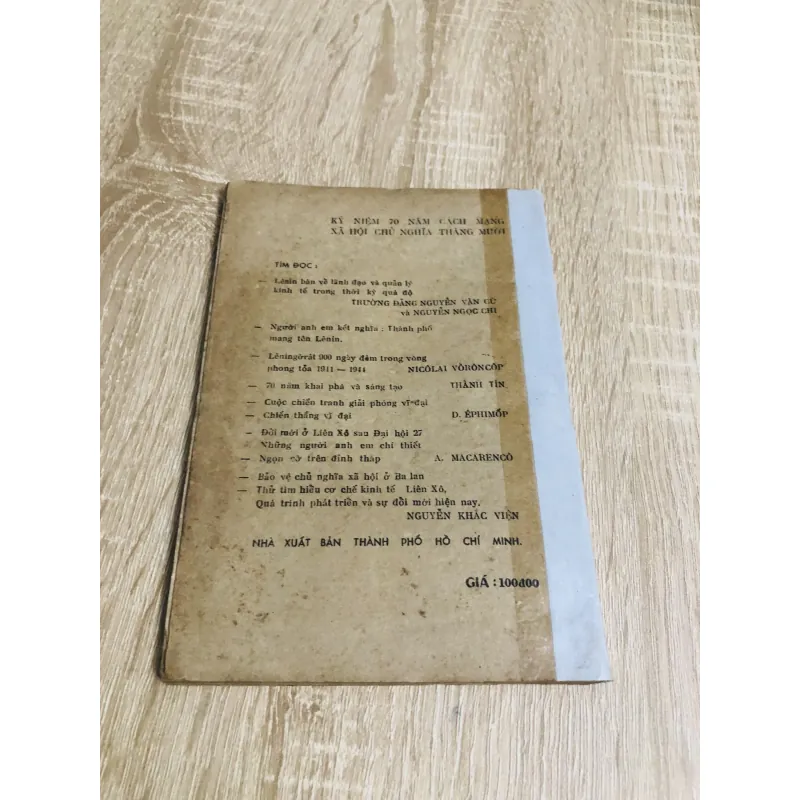 KỶ NIỆM 70 NĂM CÁCH MẠNG
XÃ HỘI CHỦ NGHĨA THÁNG MƯỜI
TÌM ĐỌC :
— Lênin bàn về lãnh đạo và quản lý
kinh tế trong thời kỳ quá độ
TRƯƠNG ĐẢNG NGUYỄN VĂN CỪ
và NGUYỄN NGỌC CHI
— Người anh em kết nghĩa : Thành phố
mang tên Lênin.
— Lêningờrát 900 ngày đêm trong vòng
phong tỏa 1941 — 1944 NICÔLAI VÔRÔNCỐP
— 70 năm khai phá và sáng tạo THÀNH TÍN
— Cuộc chiến tranh giải phóng vĩ đại
— Chiến thắng vĩ đại D. ÉPHIMỐP
— Đổi mới ở Liên Xô sau Đại hội 27
Những người anh em chí thiết
— Ngọn cờ trên đỉnh tháp A. MACARENCÔ
— Bảo vệ chủ nghĩa xã hội ở Ba lan
— Thử tìm hiểu cơ chế kinh tế Liên Xô,
Quá trình phát triển và sự đổi mới hiện nay.
NGUYỄN KHẮC VIỆN
NHÀ XUẤT BẢN THÀNH PHỐ HỒ CHÍ MINH.
GIÁ : 100đ00